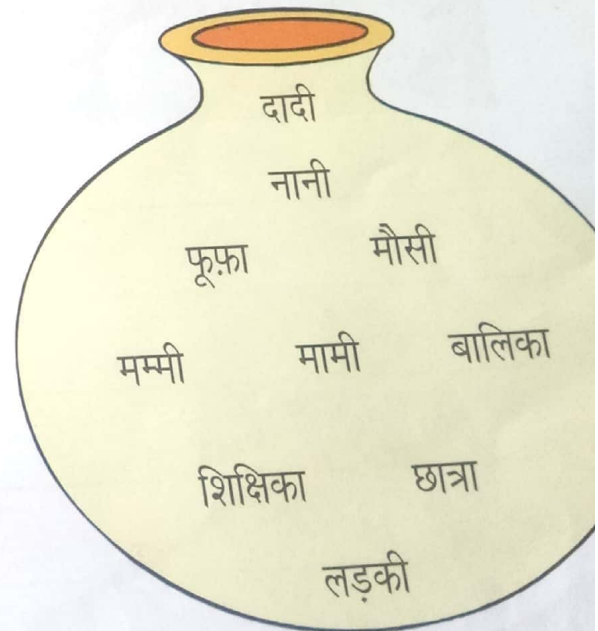 दादी
नानी
फूफ़ा मौसी
मम्मी मामी बालिका
शिक्षिका छात्रा
लड़की